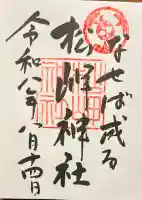 なせば成る
松岬神社
令和八年八月十四日